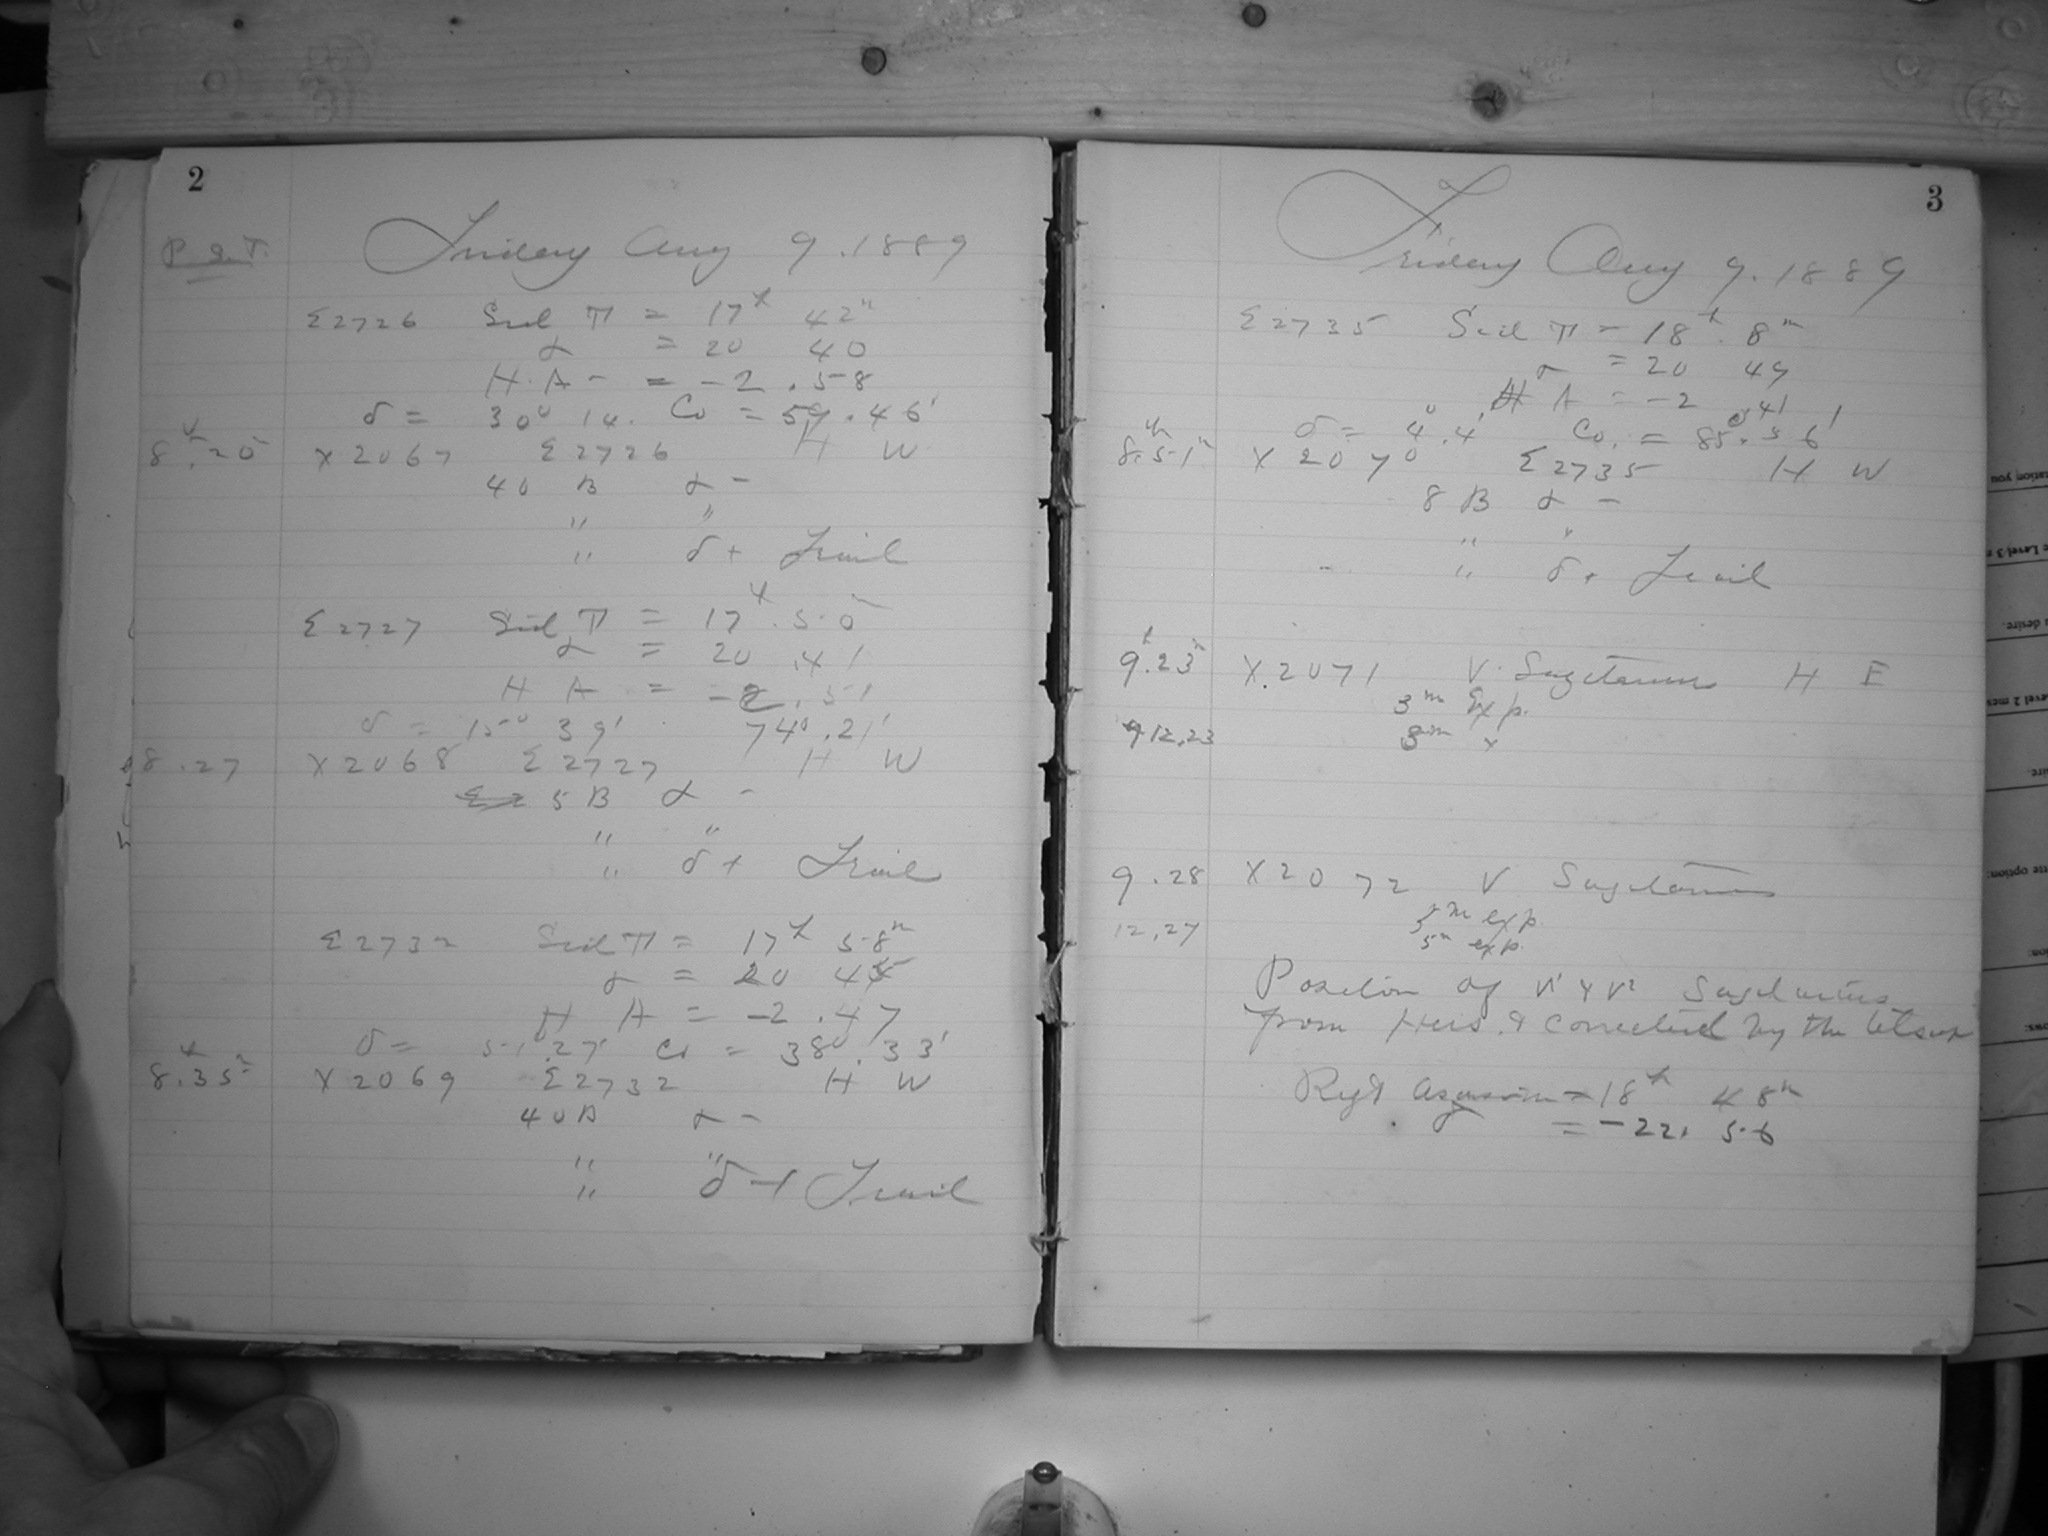 2
P.S.T. Friday Aug 9. 1889
Σ2726 Sid T = 17h 42m
α = 20 40
H. A - = -2 . 58
δ = 30° 14. Co = 59° . 46'
8h.20 X2067 Σ2726 H W
40 B α -
" "
" δ + Trail
Σ2727 Sid T = 17h. 50m
α = 20 . 41
H A = -2 . 51
δ = 15° 39' 74° . 21'
8.27 X2068 Σ2727 H W
5 B α -
" "
" δ + Trail
Σ2732 Sid T = 17h 58m
α = 20 45
H A = -2 . 47
δ = 51°.27' Co = 38° . 33'
8h.35m X2069 Σ2732 H W
40 B α -
" "
" δ + Trail
3
Friday Aug 9. 1889
Σ2735 Sid T = 18h. 8m
α = 20 49
H A = -2 . 41
δ = 4°.4' Co. = 85° . 56'
8h.51m X2070 Σ2735 H W
8 B α -
" "
" δ + Trail
9h.23m X.2071 V. Sagittarius H E
3m Exp.
12.23 3m
9.28 X2072 V Sagittarius
5m exp.
12.27 5m exp.
Position of V' & V2 Sagittarius
from Hers. & corrected by the
Right Ascension = 18h 48m
= -22. 56